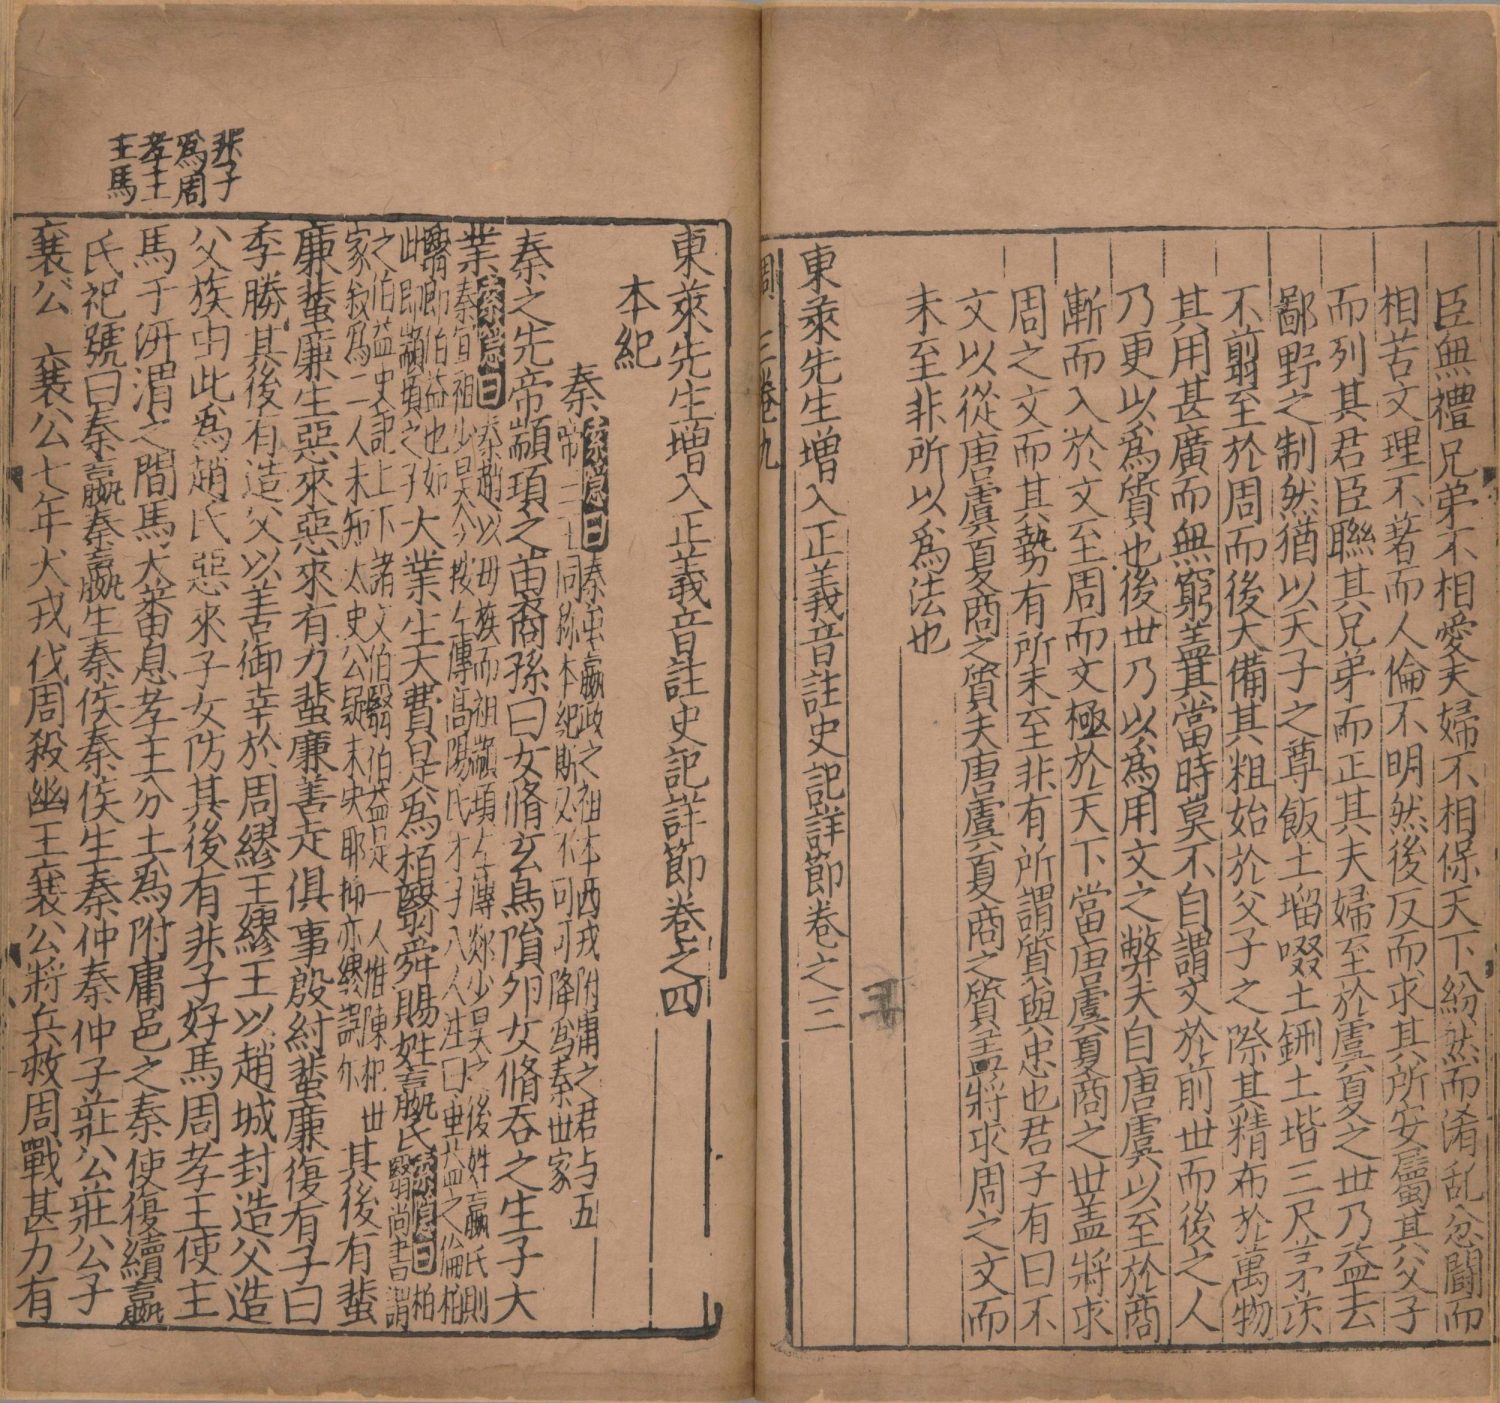 臣無禮兄弟不相愛夫婦不相保天下紛然而淆乱忿鬭而
相苦文理不著而人倫不明然後反而求其所安屬其父子
而列其君臣聯其兄弟而正其夫婦至於虞夏之世乃益去
鄙野之制然猶以天子之尊飯土塯啜土鉶土堦三尺茅茨
不翦至於周而後大備其粗始於父子之際其精布於萬物
其用甚廣而無窮盖其當時莫不自謂文於前世而後之人
乃更以爲質也後世乃以爲用文之弊夫自唐虞以至於商
漸而入於文至周而文極於天下當唐虞夏商之世盖將求
周之文而其勢有所未至非有所謂質與忠也君子有曰不
文以從唐虞夏商之質夫唐虞夏商之質盖將求周之文而
未至非所以爲法也
東萊先生增入正義音註史記詳節卷之三
周 三卷九
非子
爲周
孝王
主馬
東萊先生增入正義音註史記詳節卷之四
本紀
秦
索隱曰
秦虽嬴政之祖本西戎附庸之君与五
帝三王同称本紀斯必不可可降爲秦世家
秦之先帝顓頊之苗裔孫曰女脩玄鳥隕卵女脩吞之生子大
業
索隱曰
秦趙以母族而祖顓頊左傳郯少昊之後姓嬴氏則
秦宜祖少昊今按左傳高陽氏才子八人注曰垂益之倫柏
翳即伯益也如
此即顓頊之子
大業生大費是爲栢翳舜賜姓嬴氏
索隱曰
柏
翳尚書謂
之伯益史記上下諸文伯翳伯益是一人惟陳杞世
家敘爲二人未知太史公疑未決耶抑亦繆誤尔
其後有蜚
廉蜚廉生惡來惡來有力蜚廉善走俱事殷紂蜚廉復有子曰
季勝其後有造父以善御幸於周繆王繆王以趙城封造父造
父族由此爲趙氏惡來子女防其後有非子好馬周孝王使主
馬于汧渭之間馬大蕃息孝王分土爲附庸邑之秦使復續嬴
氏祀號曰秦嬴秦嬴生秦侯秦侯生秦仲秦仲子莊公莊公子
襄公 襄公七年犬戎伐周殺幽王襄公將兵救周戰甚力有